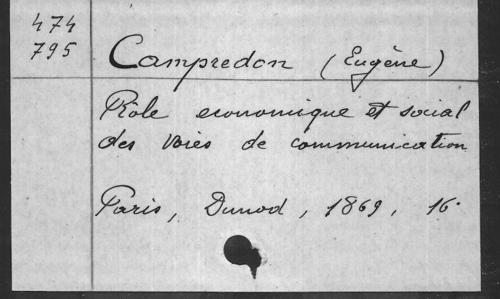 474
795
Campredon (Eugène)
Rôle economique et social
des voies de communication
Paris, Dunod, 1869, 16°